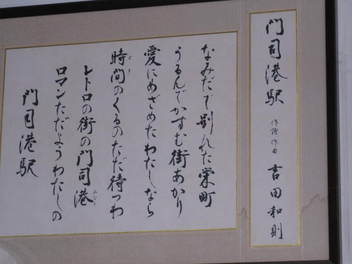 門司港駅
作詩 作曲 吉田和則
なみだで別れた栄町
うるんでかすむ街あかり
愛にめざめたわたしなら
時間のくるのただ待つわ
レトロの街の門司港
ロマンただようわたしの
門司港駅